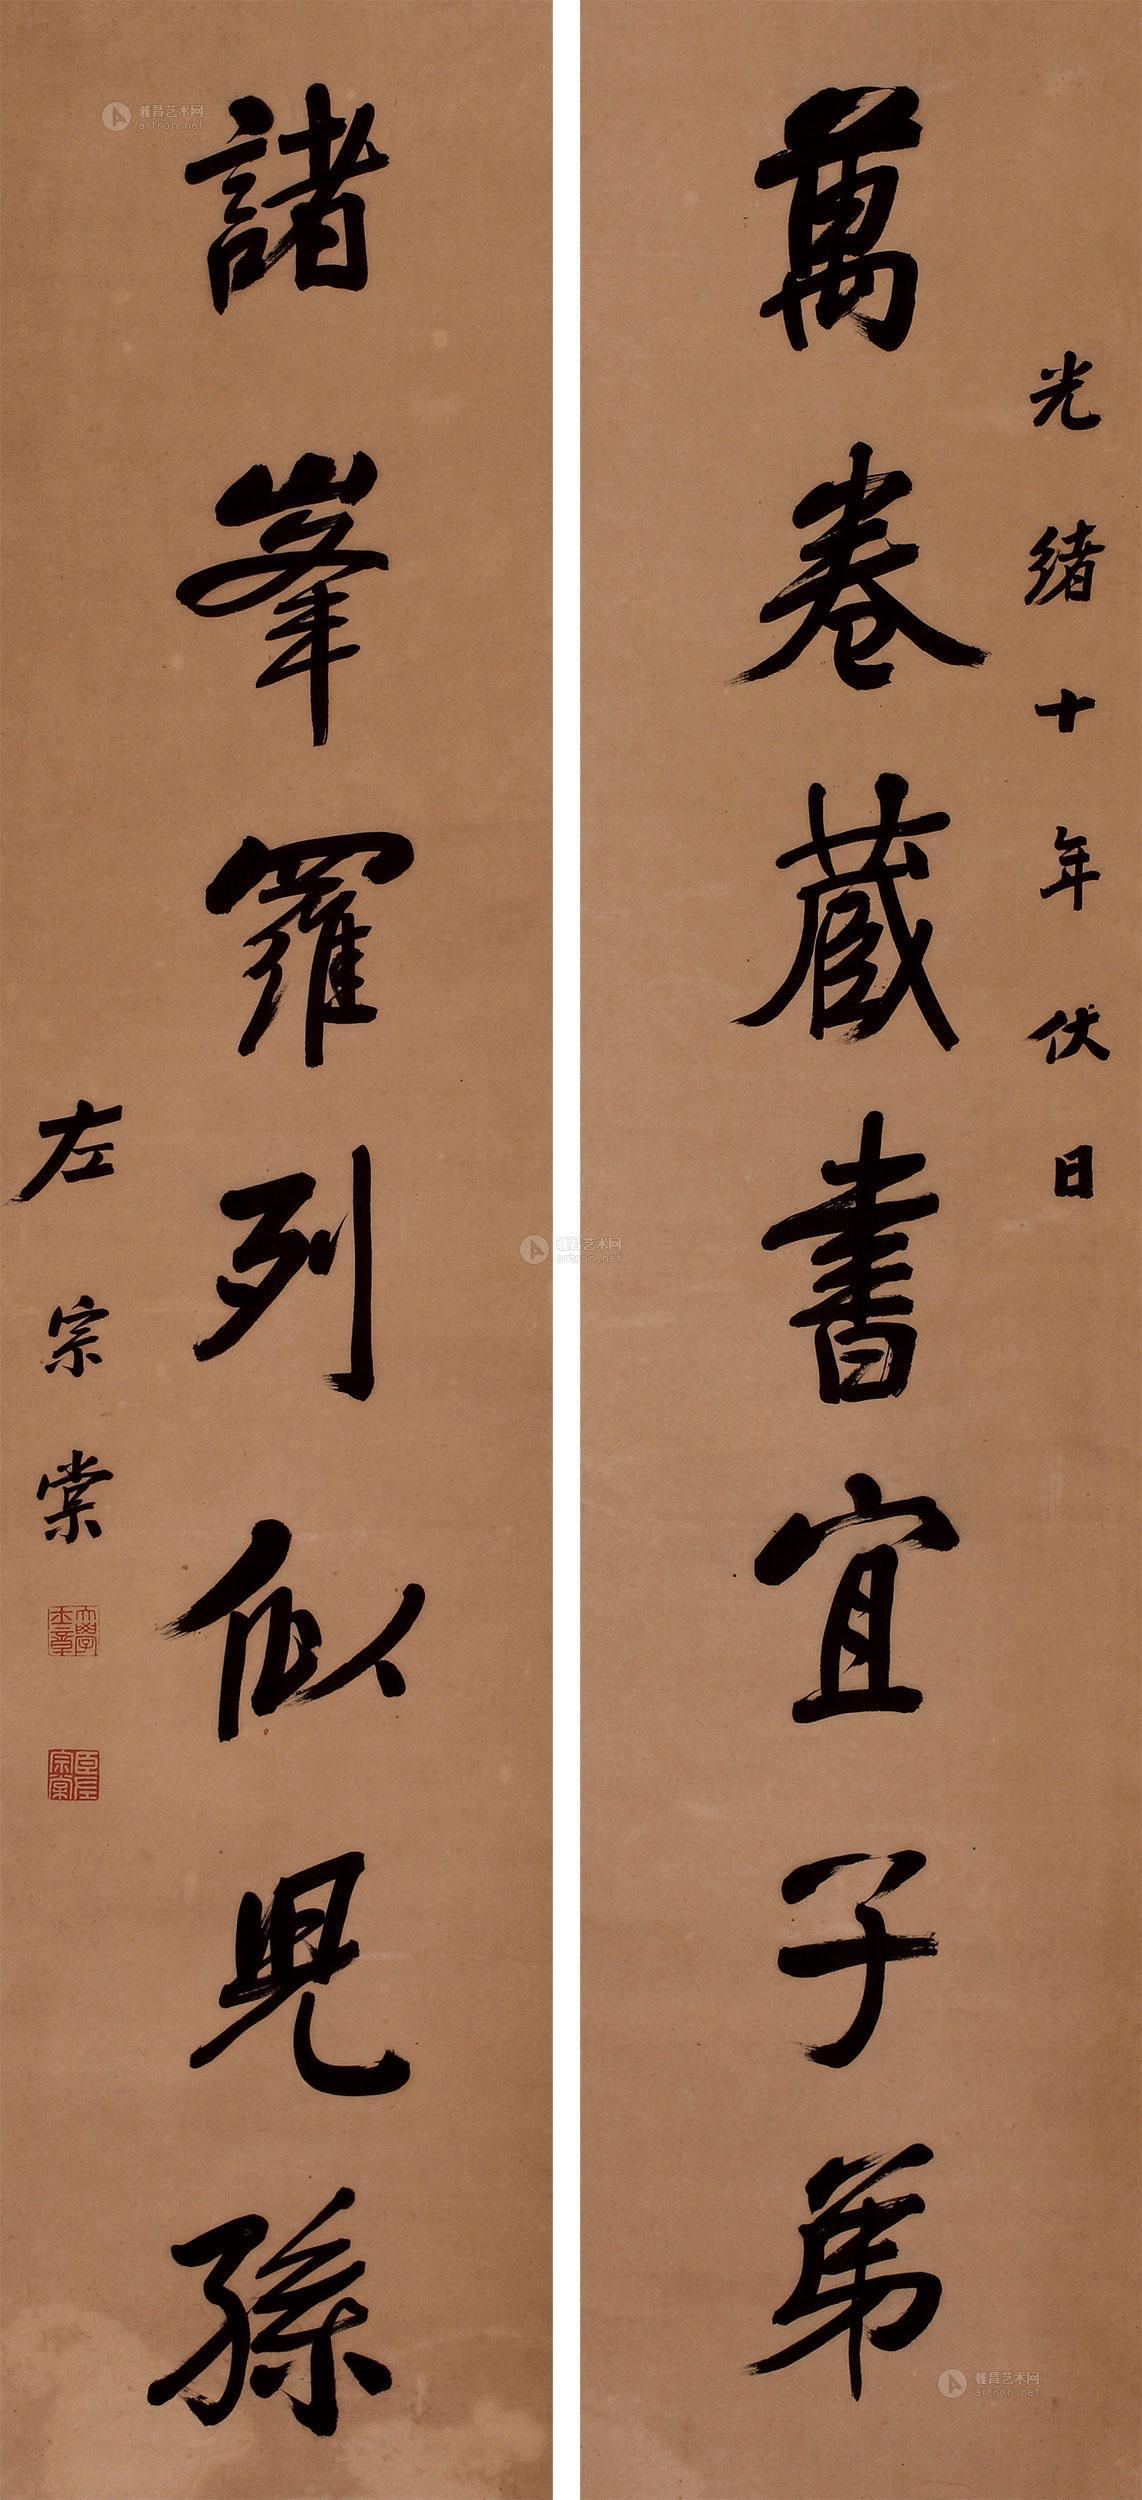 光緒十年伏日
萬卷藏書宜子弟
諸峯羅列似兒孫
左宗棠
大學士章
臣左宗棠
雅昌艺术网
artron.net
雅昌艺术网
artron.net
雅昌艺术网
artron.net